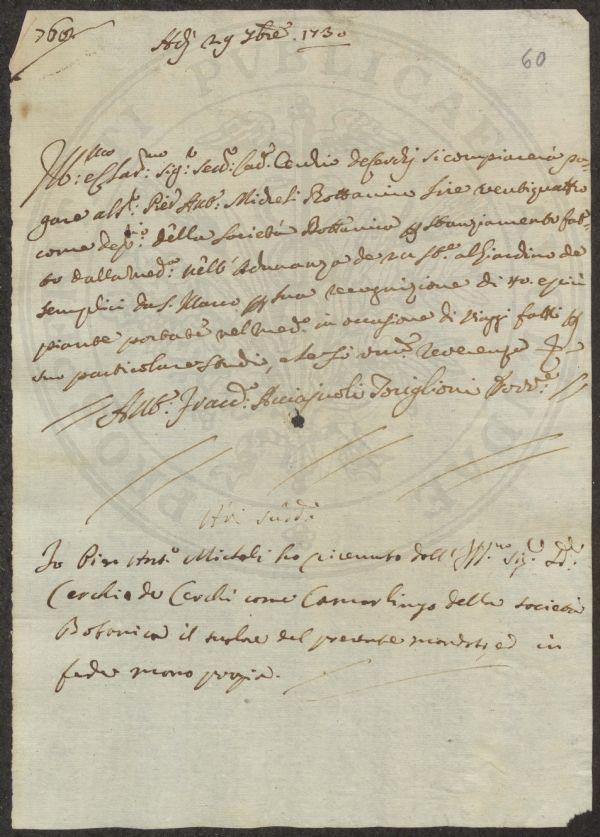 768.
Adj 29 7bre. 1730
60
Ill:mo e Clar:mo Sig:r Sen:re Cav:re Cerchio de Cerchj si compiacerà pa-
gare al S:r Pier Ant:o Micheli Bottanico lire ventiquattro
come dep:o della Società Bottanica p stanziamento fat-
to dalla med:a nell'Adunanza de al Giardino de
semplici da S. Marco p sua recognizione di 40. e più
piante portate nel med:o in occasione di viaggi fatti p
suo particolare studio, e le fò um:a reverenza
Ant:o Franc:o Acciajuoli Toriglioni Provv:re
Adi sudd:o
Io Pier Ant:o Micheli ho ricevuto dall'Ill:mo Sig:r
Cerchi de Cerchi come Camarlingo della società
Botanica il valore del presente mandato, ed in
fede mano propia.
PUBLICAE